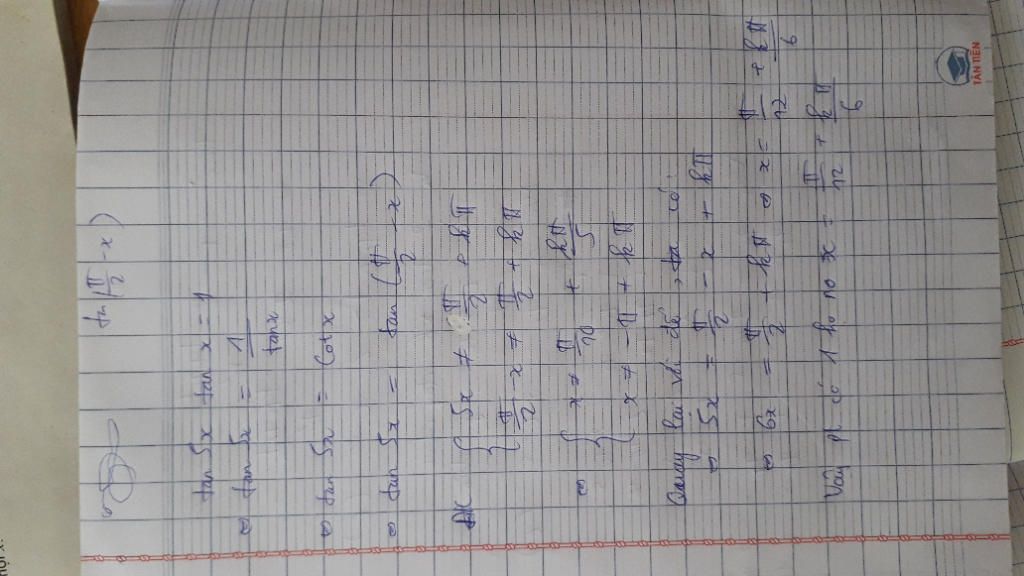 tan(π/2 - x)
tan 5x tan x = 1
⇔ tan 5x = 1/tan x
⇔ tan 5x = cot x
⇔ tan 5x = tan (π/2 - x)
ĐK { 5x ≠ π/2 + kπ
π/2 - x ≠ π/2 + kπ
⇔ { x ≠ π/10 + kπ/5
x ≠ - π + kπ
Quay lại vấn đề, ta có:
⇔ 5x = π/2 - x + kπ
⇔ 6x = π/2 + kπ ⇔ x = π/12 + kπ/6
Vậy pt có 1 họ no x = π/12 + kπ/6
TÂN TIẾN